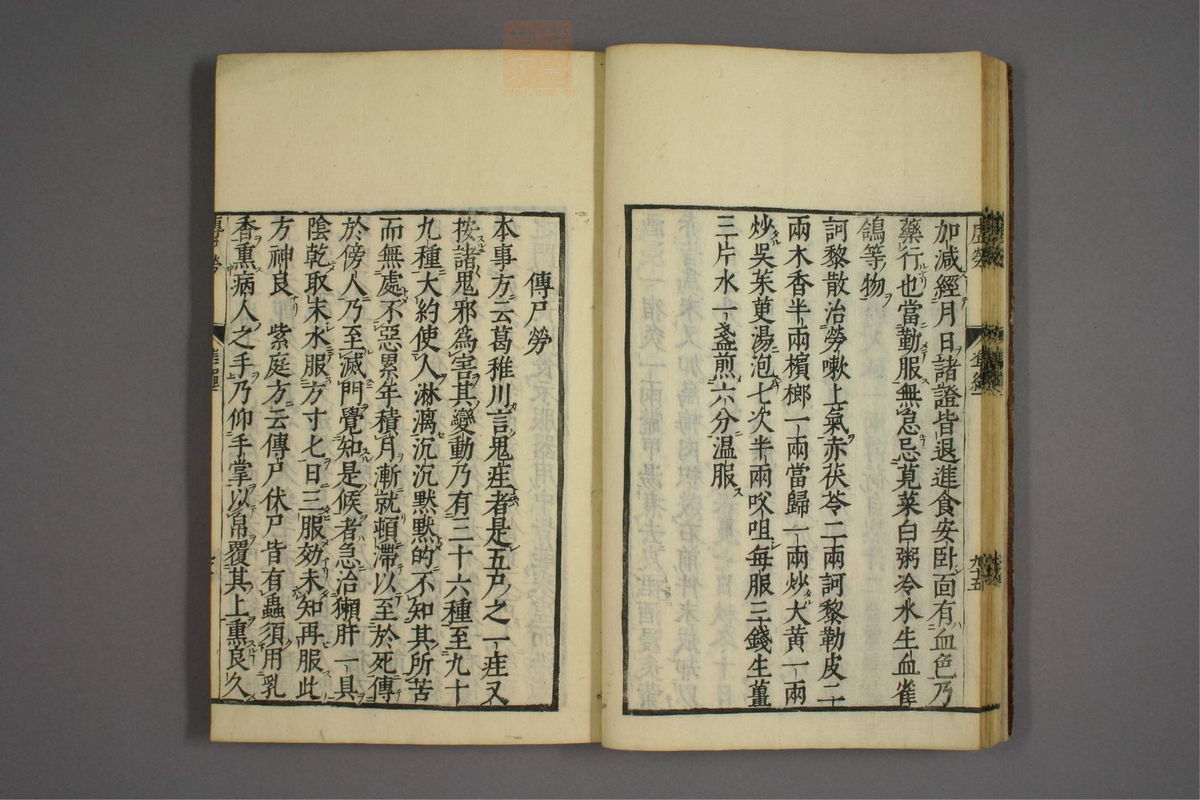 加减經月日諸證皆退進食安卧面有血色乃
藥行也當勤服無怠忌莧菜白粥冷水生血雀
鴿等物
訶黎散治勞嗽上氣赤茯苓二兩訶黎勒皮二
兩木香半兩檳榔一兩當歸一兩炒大黄一兩
炒吳茱萸湯泡七次半兩㕮咀每服三錢生薑
三片水一盞煎六分温服
傳尸勞
本事方云葛稚川言鬼疰者是五尸之一疰又
按諸鬼邪爲害其變動乃有三十六種至九十
九種大約使人淋漓沉沉默默的不知其所苦
而無處不惡累年積月漸就頓滯以至於死傳
於傍人乃至滅門覺知是候者急治獺肝一具
陰乾取末水服方寸七日三服効未知再服此
方神良　紫庭方云傳尸伏尸皆有蟲須用乳
香熏病人之手乃仰手掌以帛覆其上熏良久